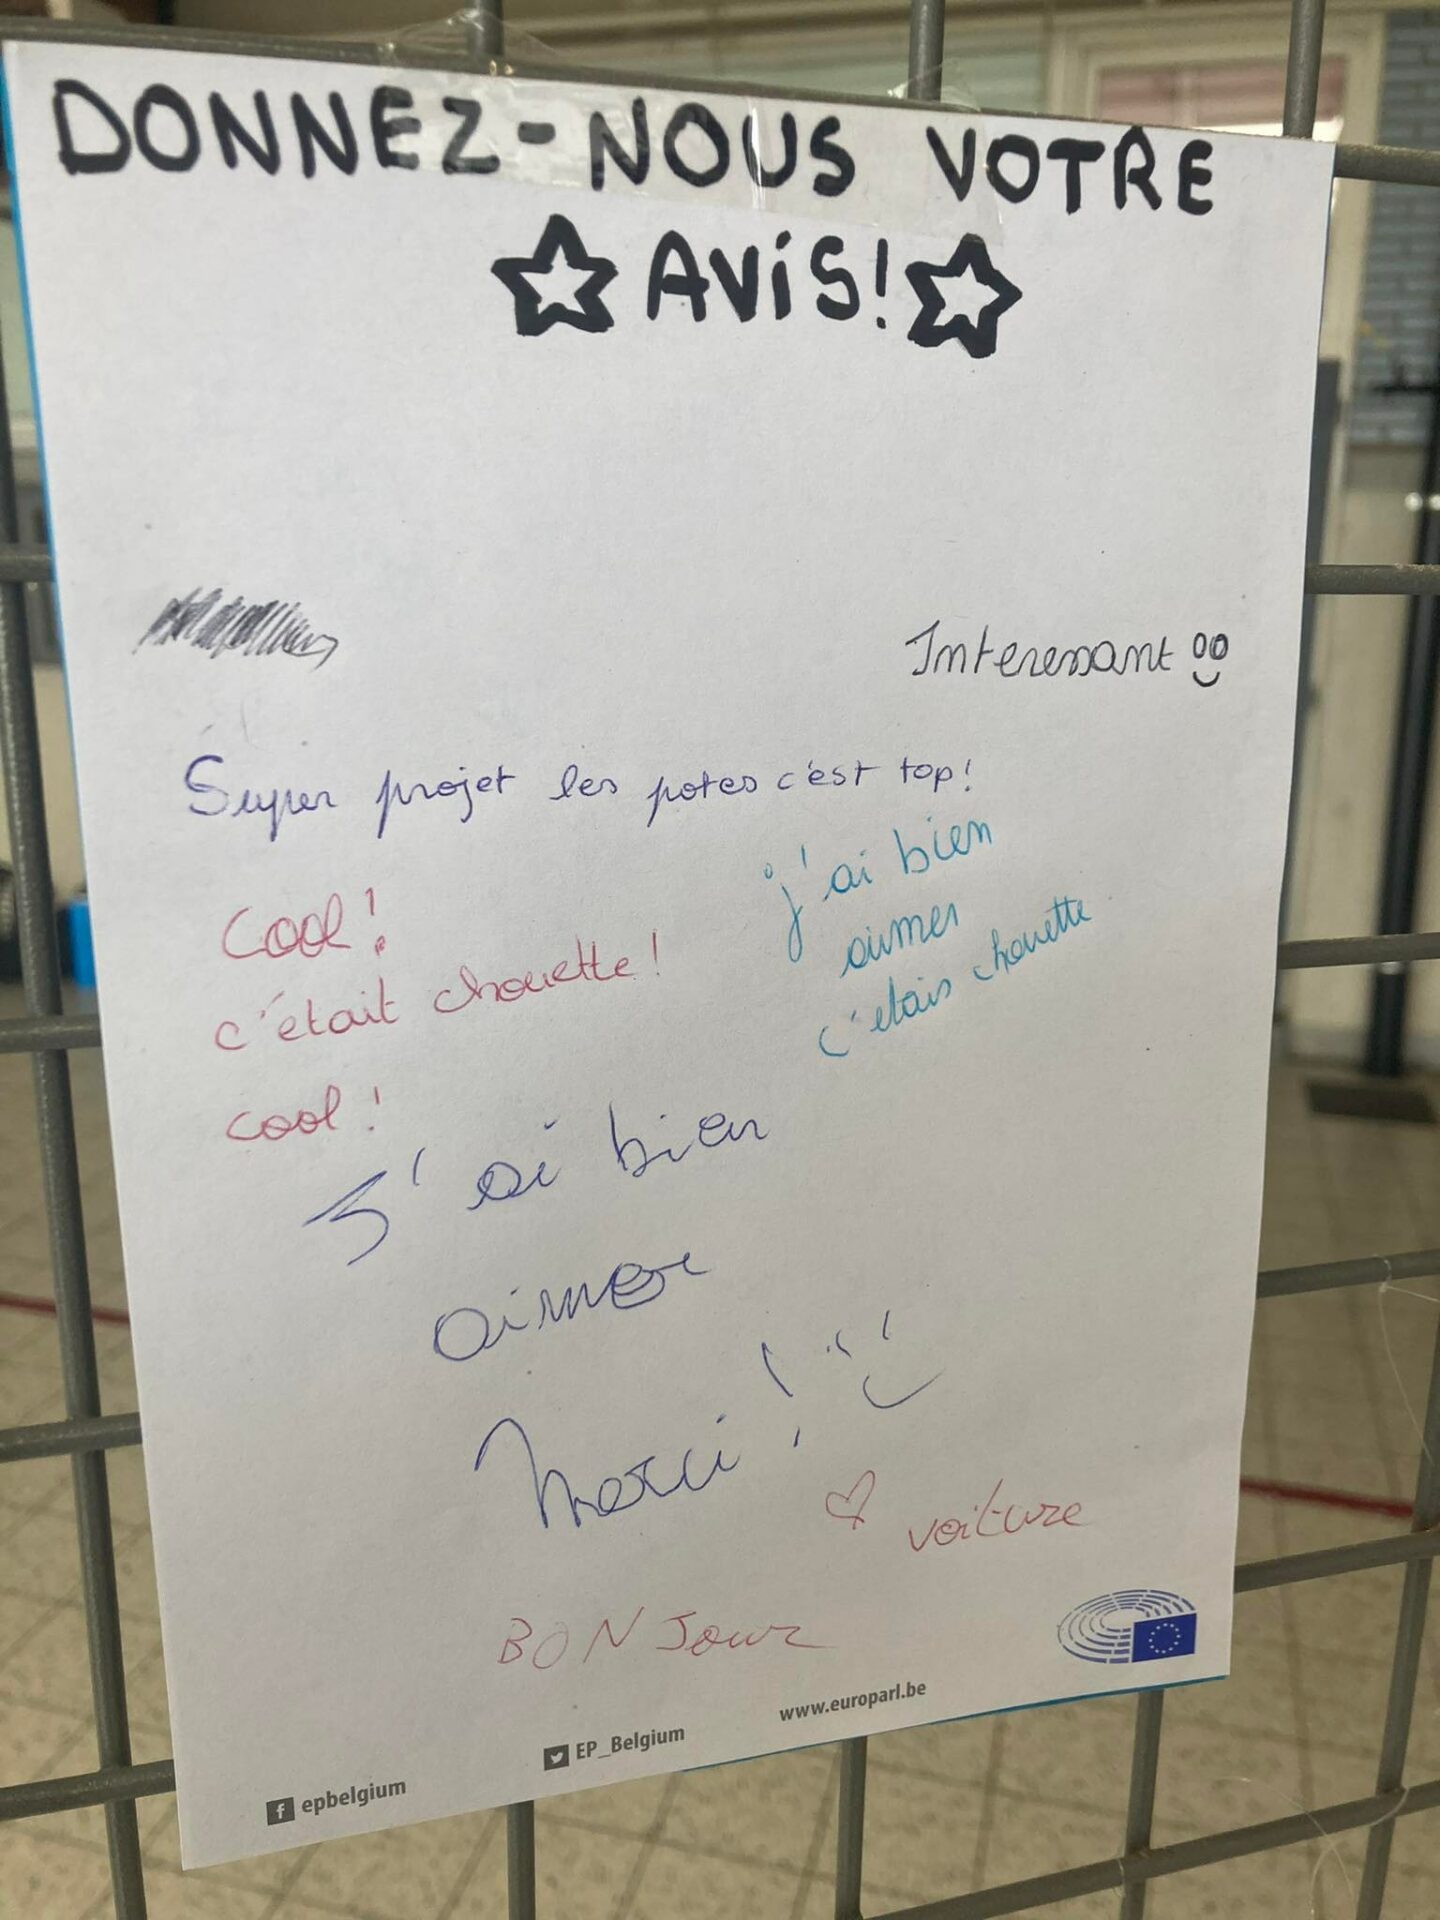 DONNEZ-NOUS VOTRE
AVIS!
Interessant
Super projet les potes c'est top!
j'ai bien
aimer
c'etais chouette
Cool!
c'était chouette!
cool!
J'ai bien
aimer
Merci!
voiture
BONJour
www.europarl.be
EP_Belgium
epbelgium